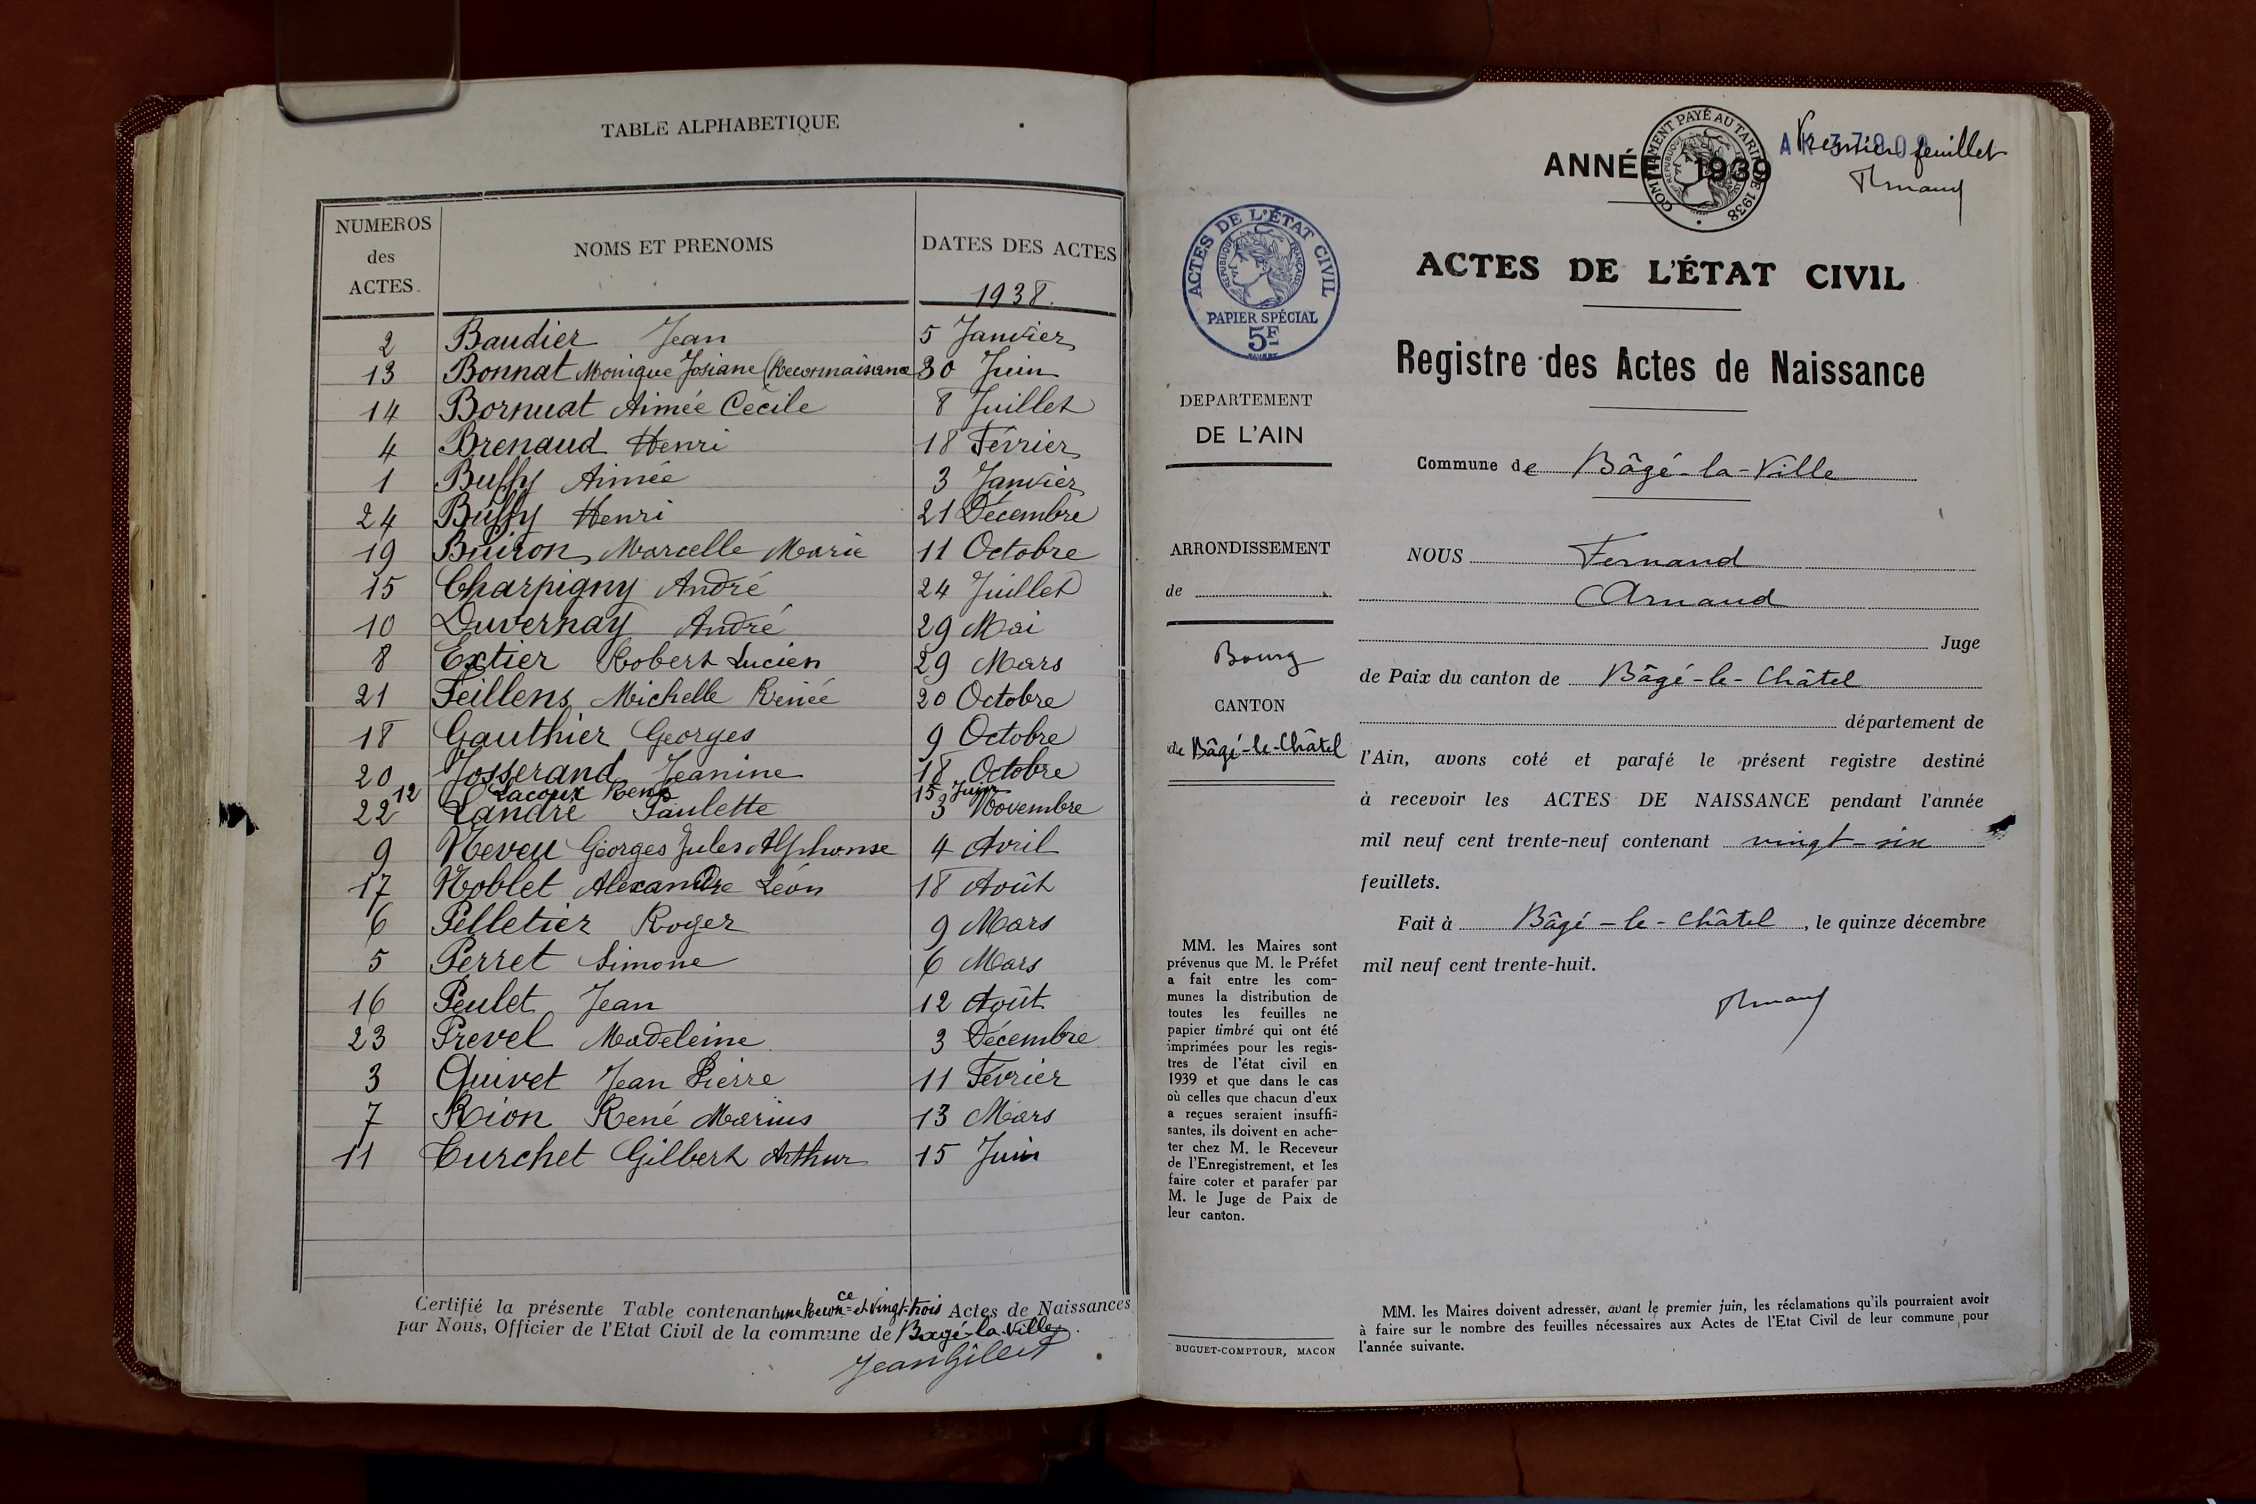 TABLE ALPHABETIQUE
NUMEROS des ACTES.
NOMS ET PRENOMS
DATES DES ACTES
1938.
2 Baudier Jean 5 Janvier
13 Bonnat Monique Josiane (Reconnaissance 30 Juin
14 Bornuat Aimée Cécile 8 Juillet
4 Brenaud Henri 18 Février
1 Buffy Aimée 3 Janvier
24 Buffy Henri 21 Décembre
19 Buiron Marcelle Marie 11 Octobre
15 Charpigny André 24 Juillet
10 Duvernay André 29 Mai
8 Extier Robert Lucien 29 Mars
21 Feillens Michelle Renée 20 Octobre
18 Gauthier Georges 9 Octobre
20 Josserand Jeanine 18 Octobre
12 Lacoux René 15 Juin
22 Landré Paulette 3 Novembre
9 Neveu Georges Jules Alphonse 4 Avril
17 Noblet Alexandre Léon 18 Août
6 Pelletier Roger 9 Mars
5 Perret Simone 6 Mars
16 Peulet Jean 12 Août
23 Prevel Madeleine 3 Décembre
3 Quivet Jean Pierre 11 Février
7 Rion René Marius 13 Mars
11 Turchet Gilbert Arthur 15 Juin
Certifié la présente Table contenant une Reconce et vingt-trois Actes de Naissances
par Nous, Officier de l'Etat Civil de la commune de Bagé-la-Ville.
Jean Gilbert
Premier feuillet
Arnaud
ANNÉE 1939
COMPLÉMENT PAYÉ AU TARIF DE 1938
ACTES DE L'ÉTAT CIVIL
RÉPUBLIQUE FRANÇAISE
PAPIER SPÉCIAL
5F
ACTES DE L'ÉTAT CIVIL
Registre des Actes de Naissance
DEPARTEMENT
DE L'AIN
Commune de Bâgé-la-Ville
ARRONDISSEMENT
de
Bourg
CANTON
de Bâgé-le-Châtel
NOUS Fernand
Arnaud
Juge
de Paix du canton de Bâgé-le-Châtel
département de
l'Ain, avons coté et parafé le présent registre destiné
à recevoir les ACTES DE NAISSANCE pendant l'année
mil neuf cent trente-neuf contenant vingt-six
feuillets.
Fait à Bâgé-le-Châtel, le quinze décembre
mil neuf cent trente-huit.
Arnaud
MM. les Maires sont
prévenus que M. le Préfet
a fait entre les com-
munes la distribution de
toutes les feuilles ne
papier timbré qui ont été
imprimées pour les regis-
tres de l'état civil en
1939 et que dans le cas
où celles que chacun d'eux
a reçues seraient insuffi-
santes, ils doivent en ache-
ter chez M. le Receveur
de l'Enregistrement, et les
faire coter et parafer par
M. le Juge de Paix de
leur canton.
BUGUET-COMPTOUR, MACON
MM. les Maires doivent adresser, avant le premier juin, les réclamations qu'ils pourraient avoir
à faire sur le nombre des feuilles nécessaires aux Actes de l'Etat Civil de leur commune pour
l'année suivante.